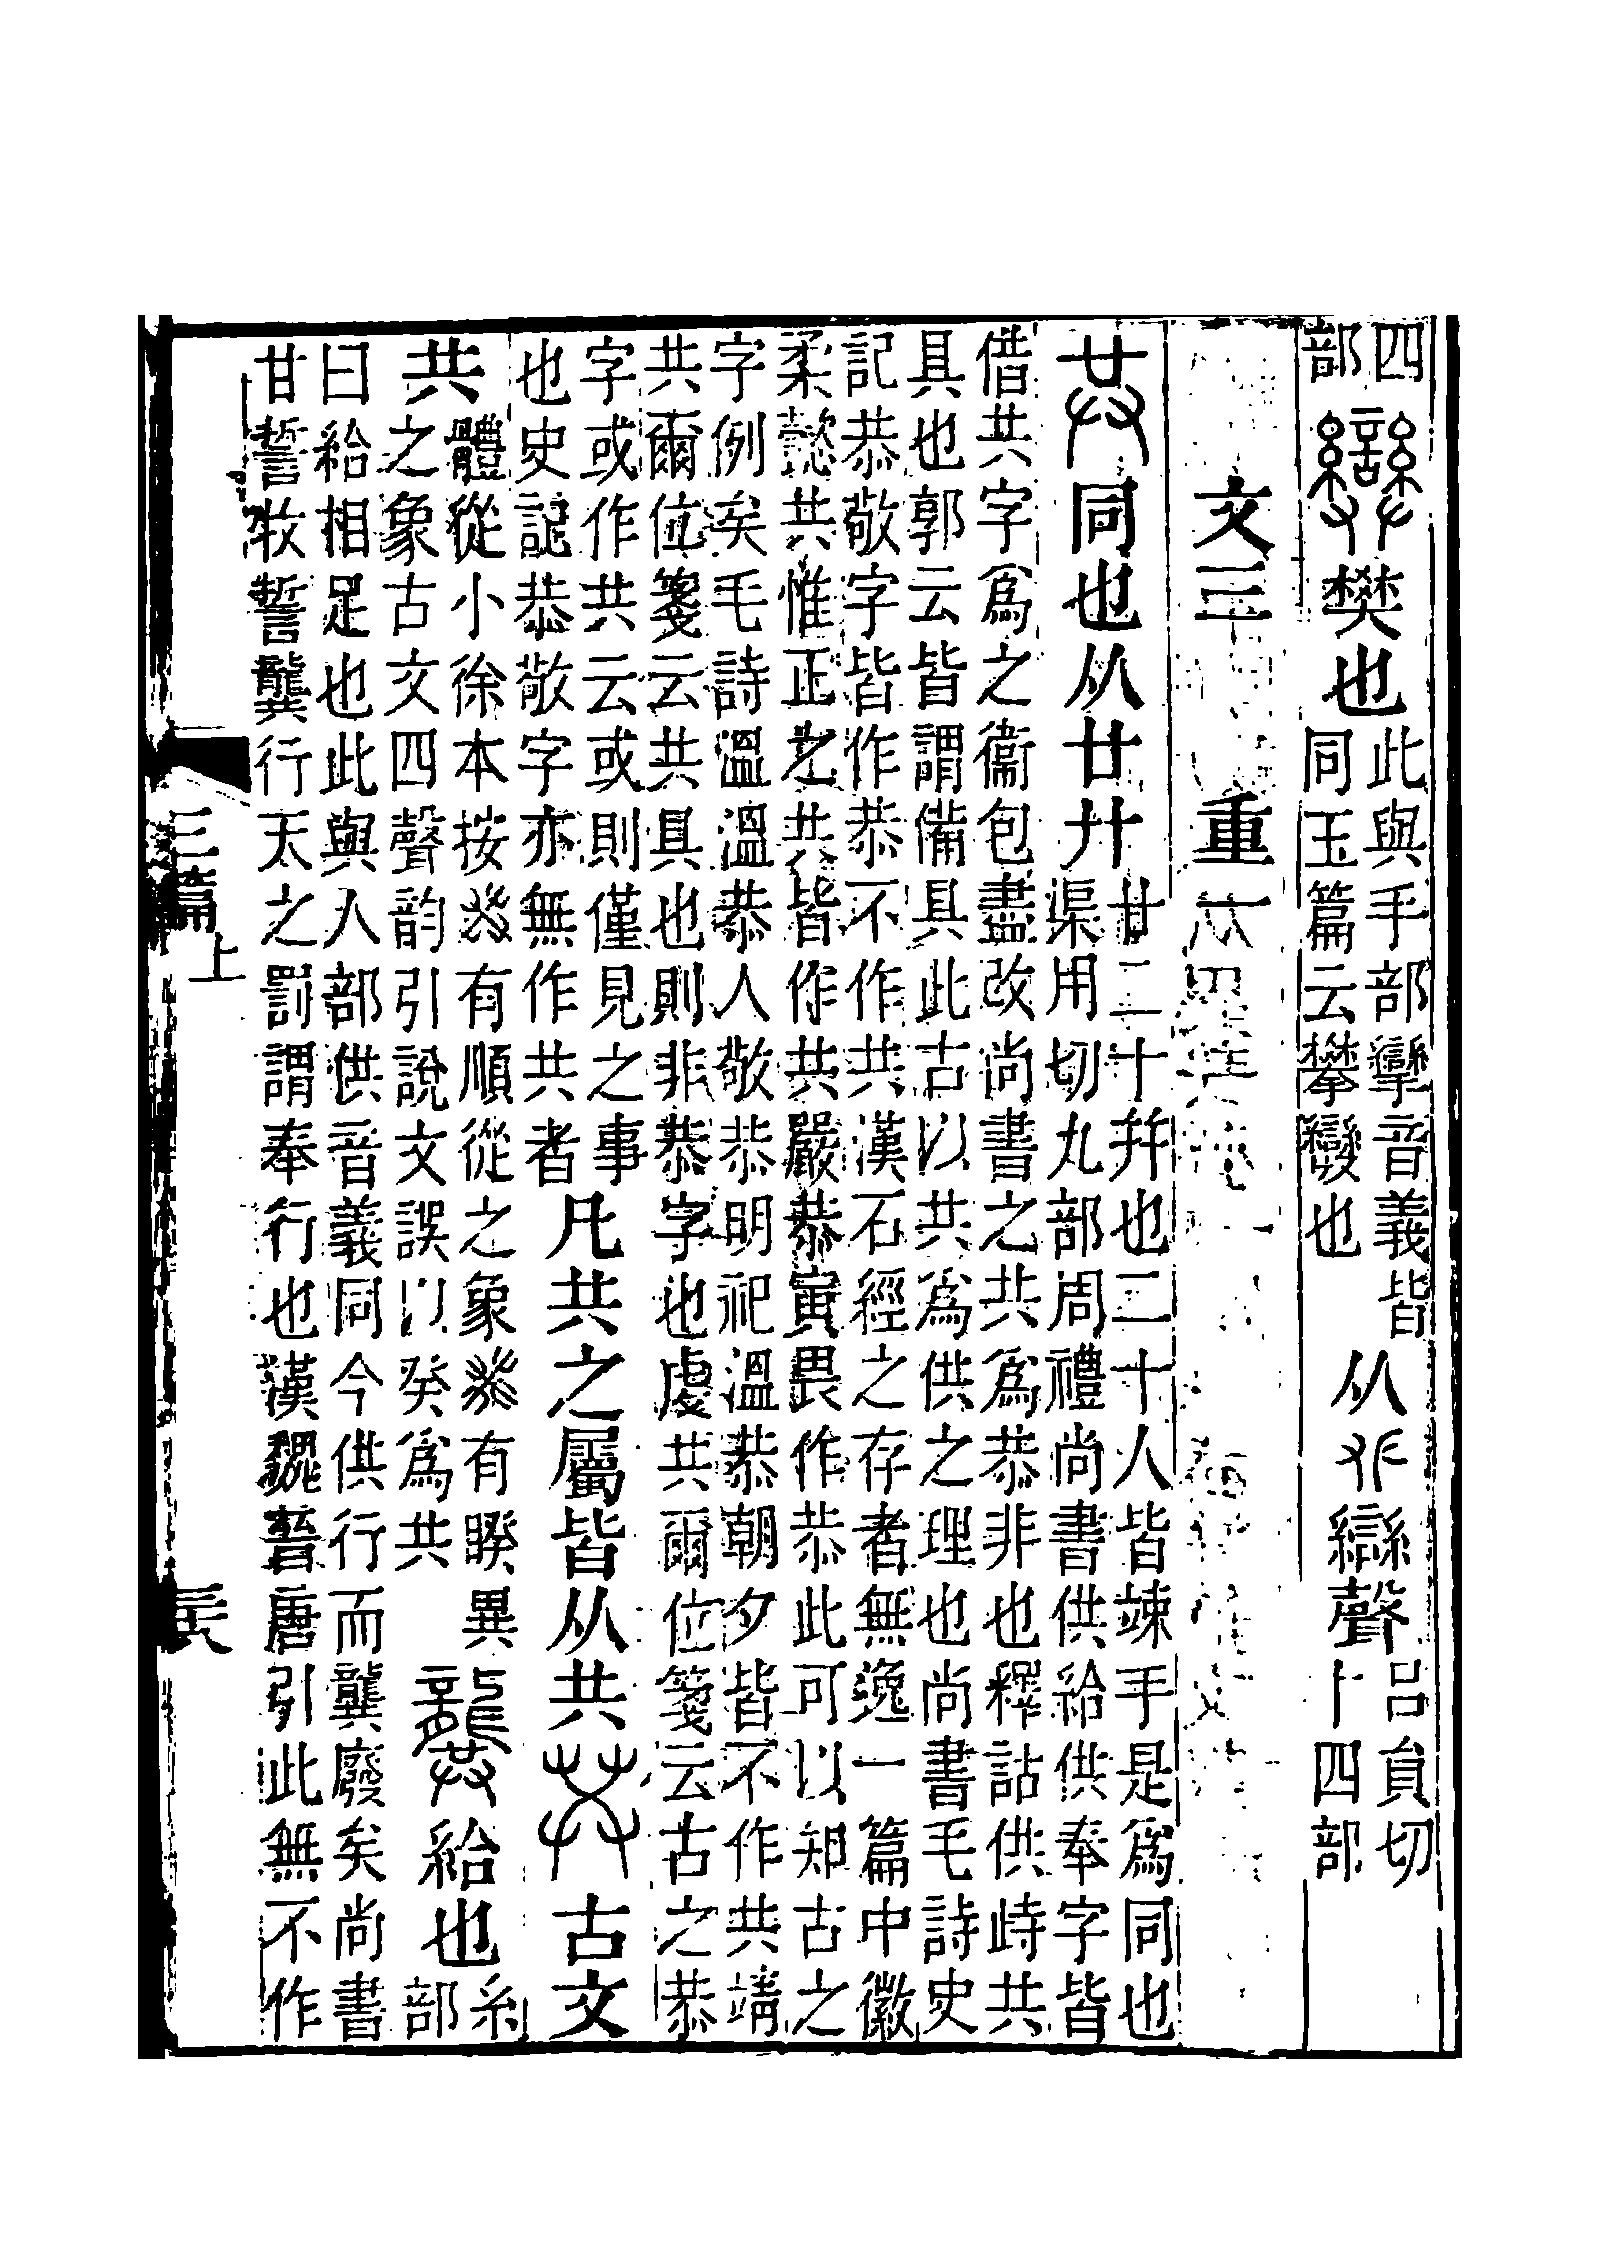 四部𢌶樊也此與手部攣音義皆同玉篇云攀𢌶也从𠬜䜌聲吕員切十四部
文三　重一
共同也从廿廾廿二十幷也二十人皆竦手是爲同也渠用切九部周禮尚書供給供奉字皆
借共字爲之衞包盡改尚書之共爲恭非也釋詁供峙共
具也郭云皆謂備具此古以共爲供之理也尚書毛詩史
記恭敬字皆作恭不作共漢石經之存者無逸一篇中徽
柔懿共惟正之共皆作共嚴恭寅畏作恭此可以知古之
字例矣毛詩溫溫恭人敬恭明祀溫恭朝夕皆不作共靖
共爾位箋云共具也則非恭字也虔共爾位箋云古之恭
字或作共云或則僅見之事
也史記恭敬字亦無作共者凡共之屬皆从共𦱹古文
共體從小徐本按𠔏有順從之象𠔏有睽異
之象古文四聲韵引說文誤以癸爲共龔給也糸部
曰給相足也此與人部供音義同今供行而龔廢矣尚書
甘誓牧誓龔行天之罰謂奉行也漢魏晉唐引此無不作
三篇上